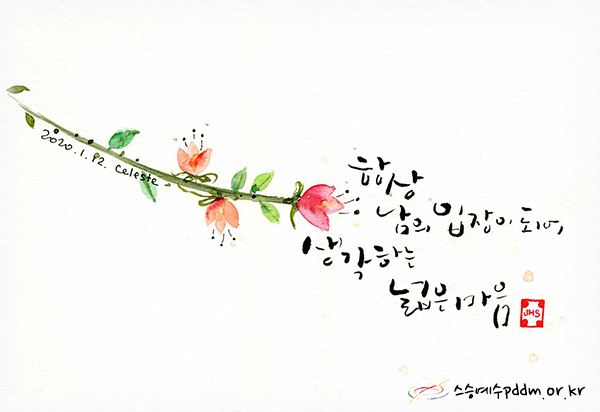 2020.1.12. Celeste
항상
남의 입장이 되어,
생각하는
넓은 마음
JHS
스승예수pddm.or.kr